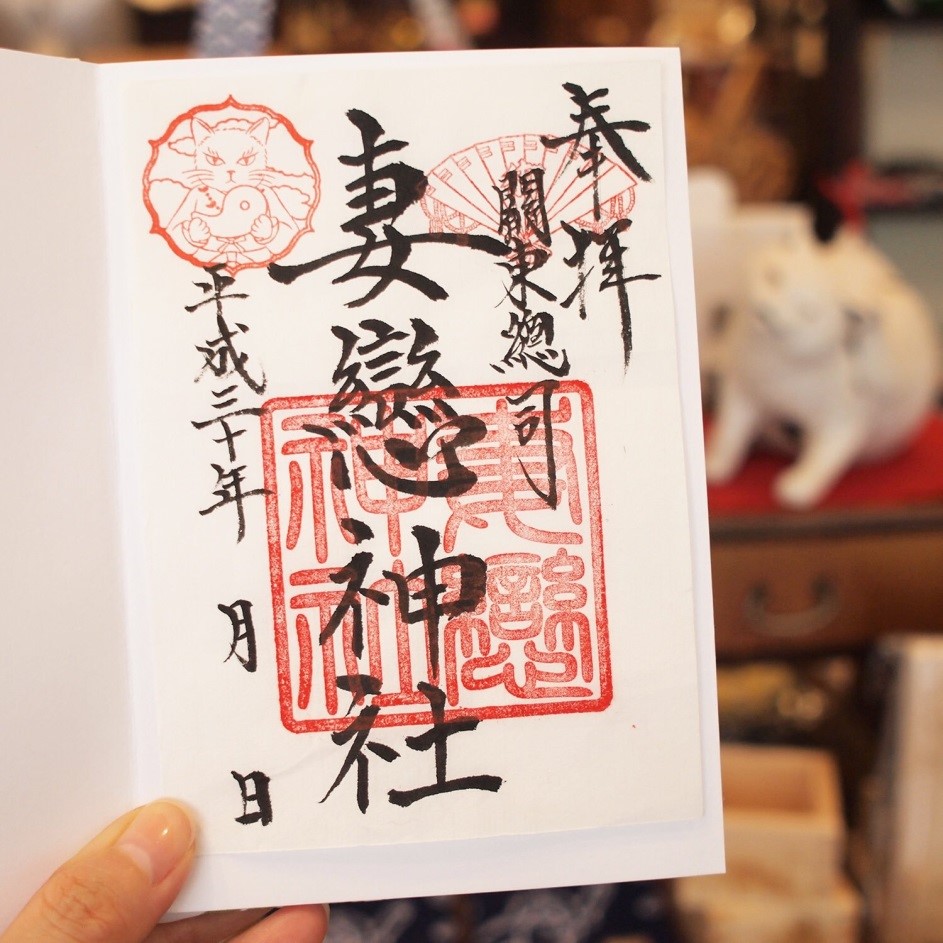 奉拝
關東總司
妻戀神社
平成三十年
月
日
妻戀
神社